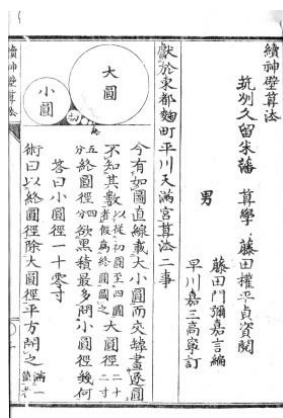 續神壁算法
筑州久留米藩 算學 藤田權平貞資閲
男 藤田門彌嘉言編
早川嘉三高寧訂
獻於東都麹町平川天滿宮算法二事
大圓
小圓
今有如圖直線載大小圓而交線畫逐圓
不知其數 以從初圓至四圓 者假為終圓圖之 大圓徑 二十二寸
五分 終圓徑 四分 欲黑積最多問小圓徑幾何
答曰小圓徑一十零寸
術曰以終圓徑除大圓徑平方開之 滿一
續神壁算法